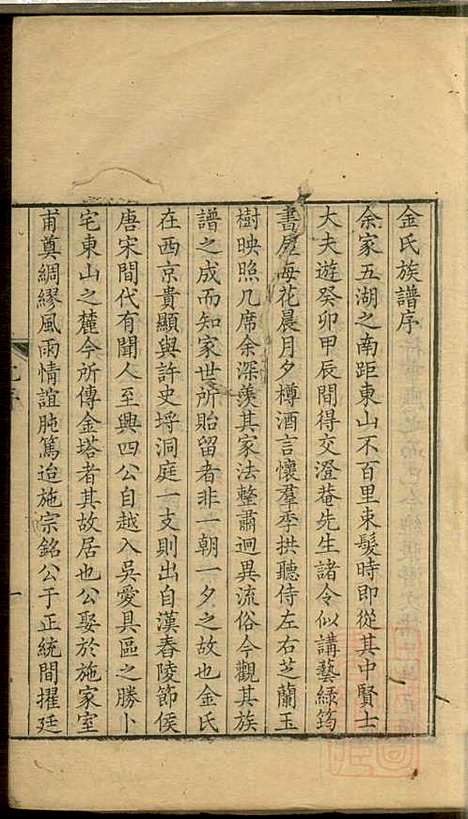 金氏族譜序
余家五湖之南距東山不百里束髮時即從其中賢士
大夫遊癸卯甲辰間得交澄菴先生諸令似講藝綠筠
書屋每花晨月夕樽酒言懷羣季拱聽侍左右芝蘭玉
樹映照几席余深羨其家法整肅迥異流俗今觀其族
譜之成而知家世所貽留者非一朝一夕之故也金氏
在西京貴顯與許史埒洞庭一支則出自漢舂陵節侯
唐宋間代有聞人至興四公自越入吳愛具區之勝卜
宅東山之麓今所傳金塔者其故居也公娶於施家室
甫奠綢繆風雨情誼肫篤迨施宗銘公于正統間擢廷